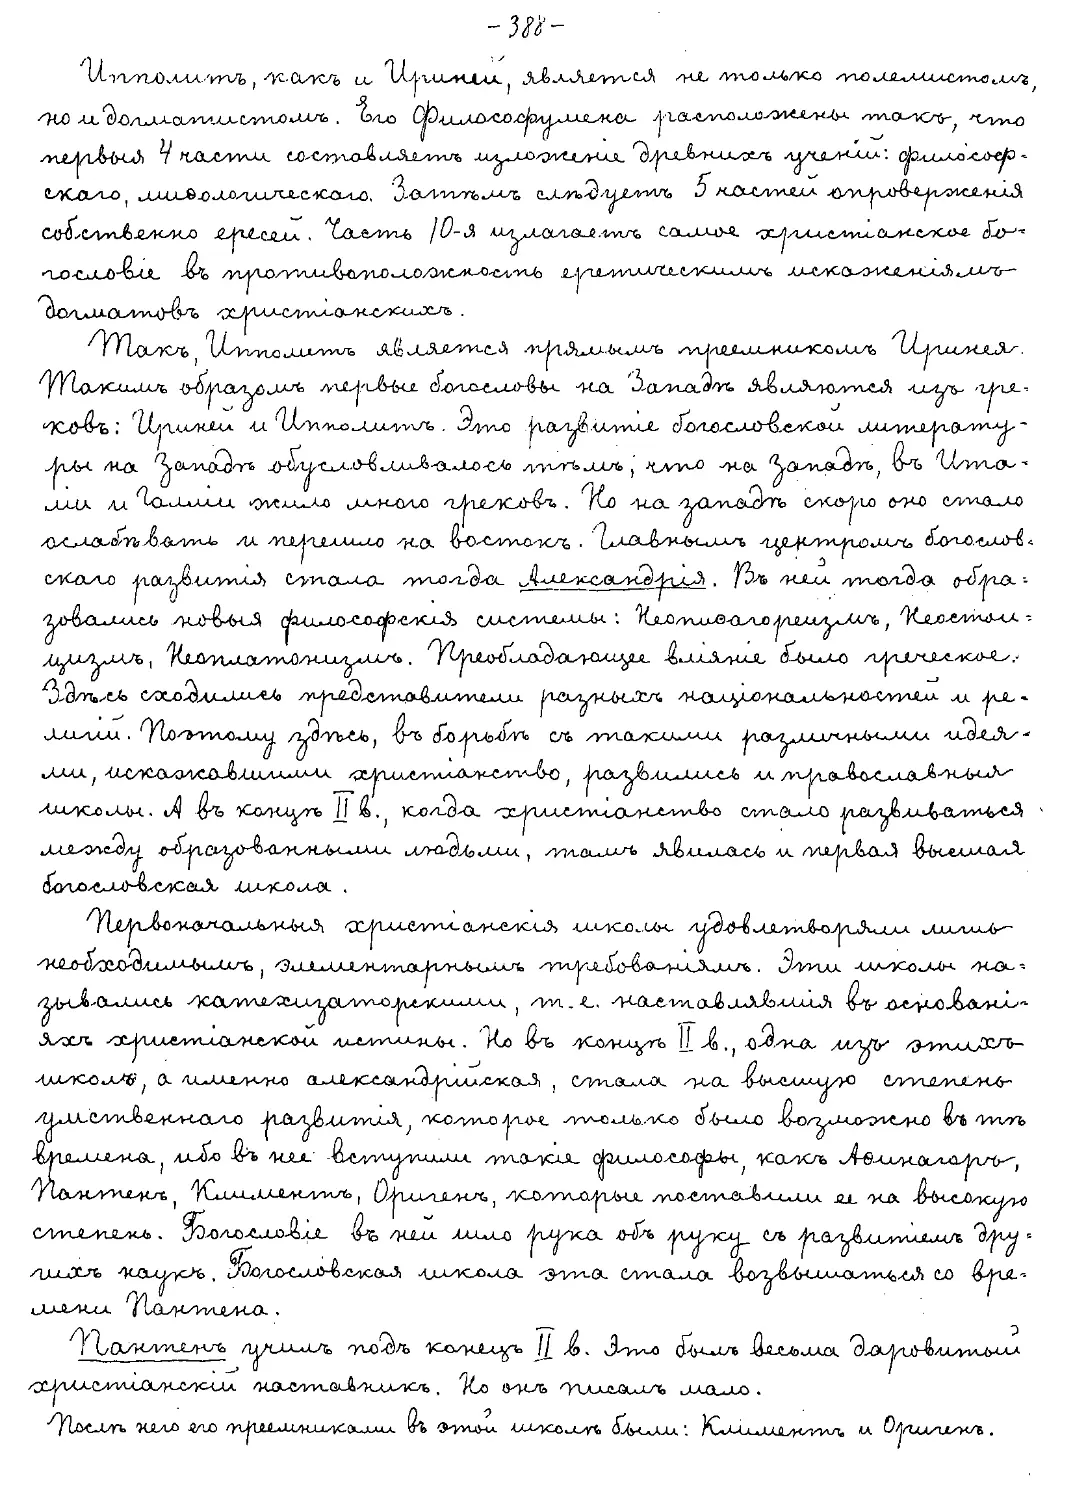 -388-
Ипполитъ, какъ и Ириней, является не только полемистомъ,
но и догматистомъ. Его Философумена расположены такъ, что
первыя 4 части составляетъ изложеніе древнихъ ученій: философ-
скаго, миѳологическаго. Затѣмъ слѣдуетъ 5 частей опроверженія
собственно ересей. Часть 10-я излагаетъ самое христіанское бо-
гословіе въ противоположность еретическимъ искаженіямъ
догматовъ христіанскихъ.
Такъ, Ипполитъ является прямымъ преемникомъ Иринея.
Такимъ образомъ первые богословы на Западѣ являются изъ гре-
ковъ: Ириней и Ипполитъ. Это развитіе богословской литерату-
ры на Западѣ обусловливалось тѣмъ, что на Западѣ, въ Ита-
ліи и Галліи жило много грековъ. Но на западѣ скоро оно стало
ослабѣвать и перешло на востокъ. Главнымъ центромъ богослов-
скаго развитія стала тогда Александрія. Въ ней тогда обра-
зовались новыя философскія системы: Неопиѳагореизмъ, Неостои-
цизмъ, Неоплатонизмъ. Преобладающее вліяніе было греческое.
Здѣсь сходились представители разныхъ національностей и ре-
лигій. Поэтому здѣсь, въ борьбѣ съ такими различными идея-
ми, искажавшими христіанство, развились и православныя
школы. А въ концѣ II в., когда христіанство стало развиваться
между образованными людьми, тамъ явилась и первая высшая
богословская школа.
Первоначальныя христіанскія школы удовлетворяли лишь
необходимымъ, элементарнымъ требованіямъ. Эти школы на-
зывались катехизаторскими, т.е. наставлявшія въ основані-
яхъ христіанской истины. Но въ концѣ II в., одна изъ этихъ
школъ, а именно александрійская, стала на высшую степень
умственнаго развитія, которое только было возможно въ тѣ
времена, ибо въ нее вступили такіе философы, какъ Аѳинагоръ,
Пантенъ, Климентъ, Оригенъ, которые поставили ее на высокую
степень. Богословіе въ ней шло рука объ руку съ развитіемъ дру-
гихъ наукъ. Богословская школа эта стала возвышаться со вре-
мени Пантена.
Пантенъ училъ подъ конецъ II в. Это былъ весьма даровитый
христіанскій наставникъ. Но онъ писалъ мало.
Послѣ него его преемниками въ этой школѣ были: Климентъ и Оригенъ.